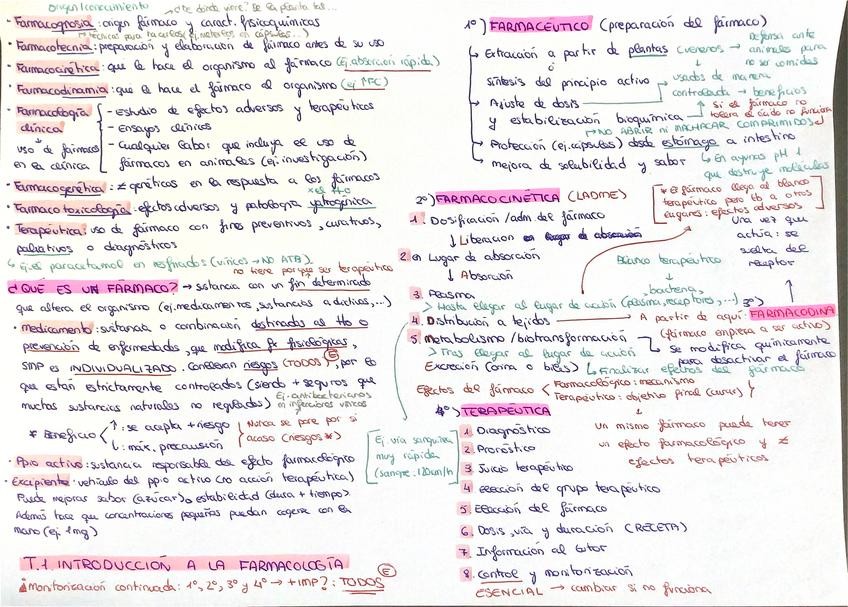 Origen/conocimiento → ¿De dónde viene? de la planta tal...
· Farmacognosia: origen fármaco y caract. fisicoquímicas
→ técnicas para hacerlas (ej. meterlas en cápsulas...)
· Farmacotecnia: preparación y elaboración de fármaco antes de su uso
· Farmacocinética: que le hace el organismo al fármaco (ej. absorción rápida)
· Farmacodinamia: que le hace el fármaco al organismo (ej ↑FC)
· Farmacología clínica
uso de fármacos en la clínica
- Estudio de efectos adversos y terapéuticos
- Ensayos clínicos
- Cualquier labor que incluya el uso de
fármacos en animales (ej. investigación)
· Farmacogenética: ≠ genéticas en la respuesta a los fármacos
x el Ho
· Farmacotoxicología: efectos adversos y patología yatrogénica
· Terapéutica: uso de fármaco con fines preventivos, curativos,
paliativos o diagnósticos
↳ ej. es paracetamol en resfriados (víricos → NO ATB).
no tiene porque ser terapéutico
¿QUÉ ES UN FÁRMACO? → sustancia con un fin determinado
que altera el organismo (ej. medicamentos, sustancias adictivas,...)
· medicamento: sustancia o combinación destinadas al tto o
prevención de enfermedades, que modifica fx fisiológicas,
SMP es INDIVIDUALIZADO. Conllevan riesgos (TODOS) E, por lo
que están estrictamente controlados (siendo + seguros que
muchas sustancias naturales no regulados)
Ej. antibacterianos
en infecciones víricas
* Beneficio
↑: se acepta + riesgo
↓: máx. precaución
Nunca se pone por si
acaso (riesgos *)
· Ppio activo: sustancia responsable del efecto farmacológico
· Excipiente: vehículo del ppio activo (no acción terapéutica)
Puede mejorar sabor (azúcar) o estabilidad (dura + tiempo)
Además hace que concentraciones pequeñas puedan cogerse con la
mano (ej. 1mg)
T.1. INTRODUCCIÓN A LA FARMACOLOGÍA
¿Monitorización continuada: 1º, 2º, 3º y 4º → + IMP?: TODOS E
1º) FARMACÉUTICO (preparación del fármaco)
Extracción a partir de plantas (venenos →
Defensa ante
animales para
no ser comidas
ó
síntesis del principio activo
usados de manera
controlada → beneficios
Ajuste de dosis
y estabilización bioquímica
si el fármaco no
tolera el ácido no funciona
→ NO ABRIR NI MACHACAR COMPRIMIDOS
Protección (ej. cápsulas) desde estómago a intestino
mejora de solubilidad y sabor
↳ En ayunas pH 1
que destruye moléculas
2º) FARMACOCINÉTICA (LADME)
1. Dosificación /adm del fármaco
↓ Liberación
2. en Lugar de absorción
↓ Absorción
3. Plasma
> Hasta llegar al lugar de acción (plasma, receptores,...)
4. Distribución a tejidos
5. Metabolismo /biotransformación
> Tras llegar al lugar de acción
Excreción (orina o bilis)
↳ Finalizar efectos del fármaco
* El fármaco llega al blanco
terapéutico pero tb a otros
lugares: efectos adversos
Blanco terapéutico
↓
bacteria,
una vez que
actúa: se
suelta del
receptor
3º)
→ A partir de aquí: FARMACODINA
(fármaco empieza a ser activo)
se modifica químicamente
para desactivar el fármaco
Efectos del fármaco
Farmacológico: mecanismo
Terapéutico: objetivo final (curar)
un mismo fármaco puede tener
un efecto farmacológico y ≠
efectos terapéuticos
Ej. vía sanguínea
muy rápida
(sangre: 120km/h)
4º) TERAPÉUTICA
1. Diagnóstico
2. Pronóstico
3. Juicio terapéutico
4. Elección del grupo terapéutico
5. Elección del fármaco
6. Dosis, vía y duración (RECETA)
7. Información al tutor
8. Control y monitorización
ESENCIAL → cambiar si no funciona